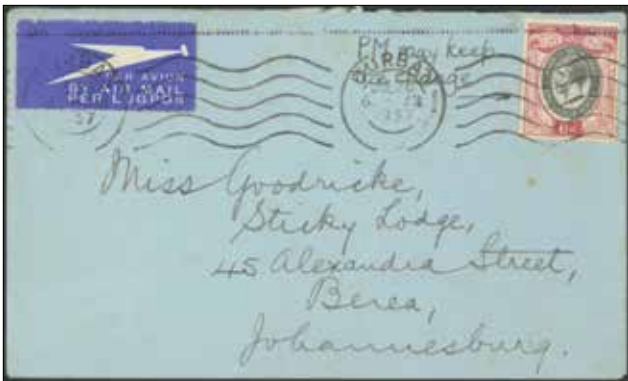 PAR AVION
BY AIR MAIL
PER LUGPOS
PM may keep
the change
DURBAN
57
Miss Goodricke,
Sticky Lodge,
45 Alexandra Street,
Berea,
Johannesburg.